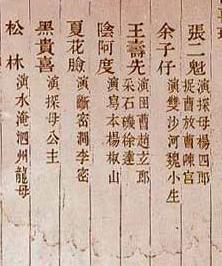 張二魁 演探母楊四郎
捉曹放曹陳宮
余子仔 演雙沙河魏小生
王壽先 演回曹趙玄郎
采石磯徐達
陰阿度 演寫本楊椒山
夏花臉 演斷密澗李密
黑貴喜 演探母公主
松林 演水淹泗州龍母